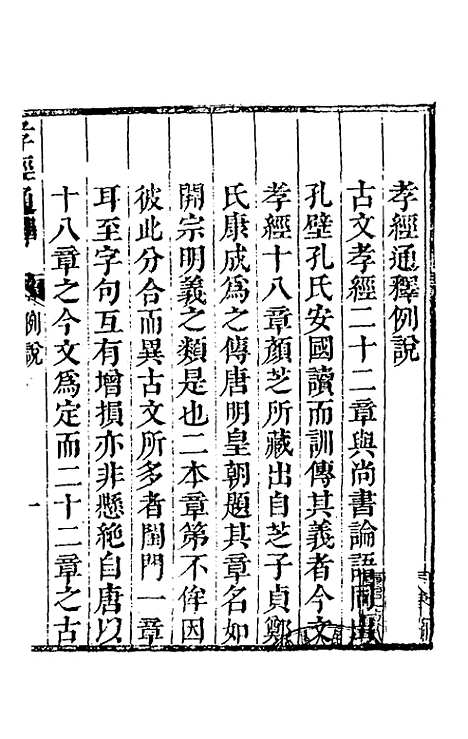 孝經通釋例說
古文孝經二十二章與尚書論語同出
孔壁孔氏安國讀而訓傳其義者今文
孝經十八章顏芝所藏出自芝子貞鄭
氏康成為之傳唐明皇朝題其章名如
開宗明義之類是也二本章第不侔因
彼此分合而異古文所多者閨門一章
耳至字句互有增損亦非懸絶自唐以
十八章之今文為定而二十二章之古
孝經通釋 例說 一